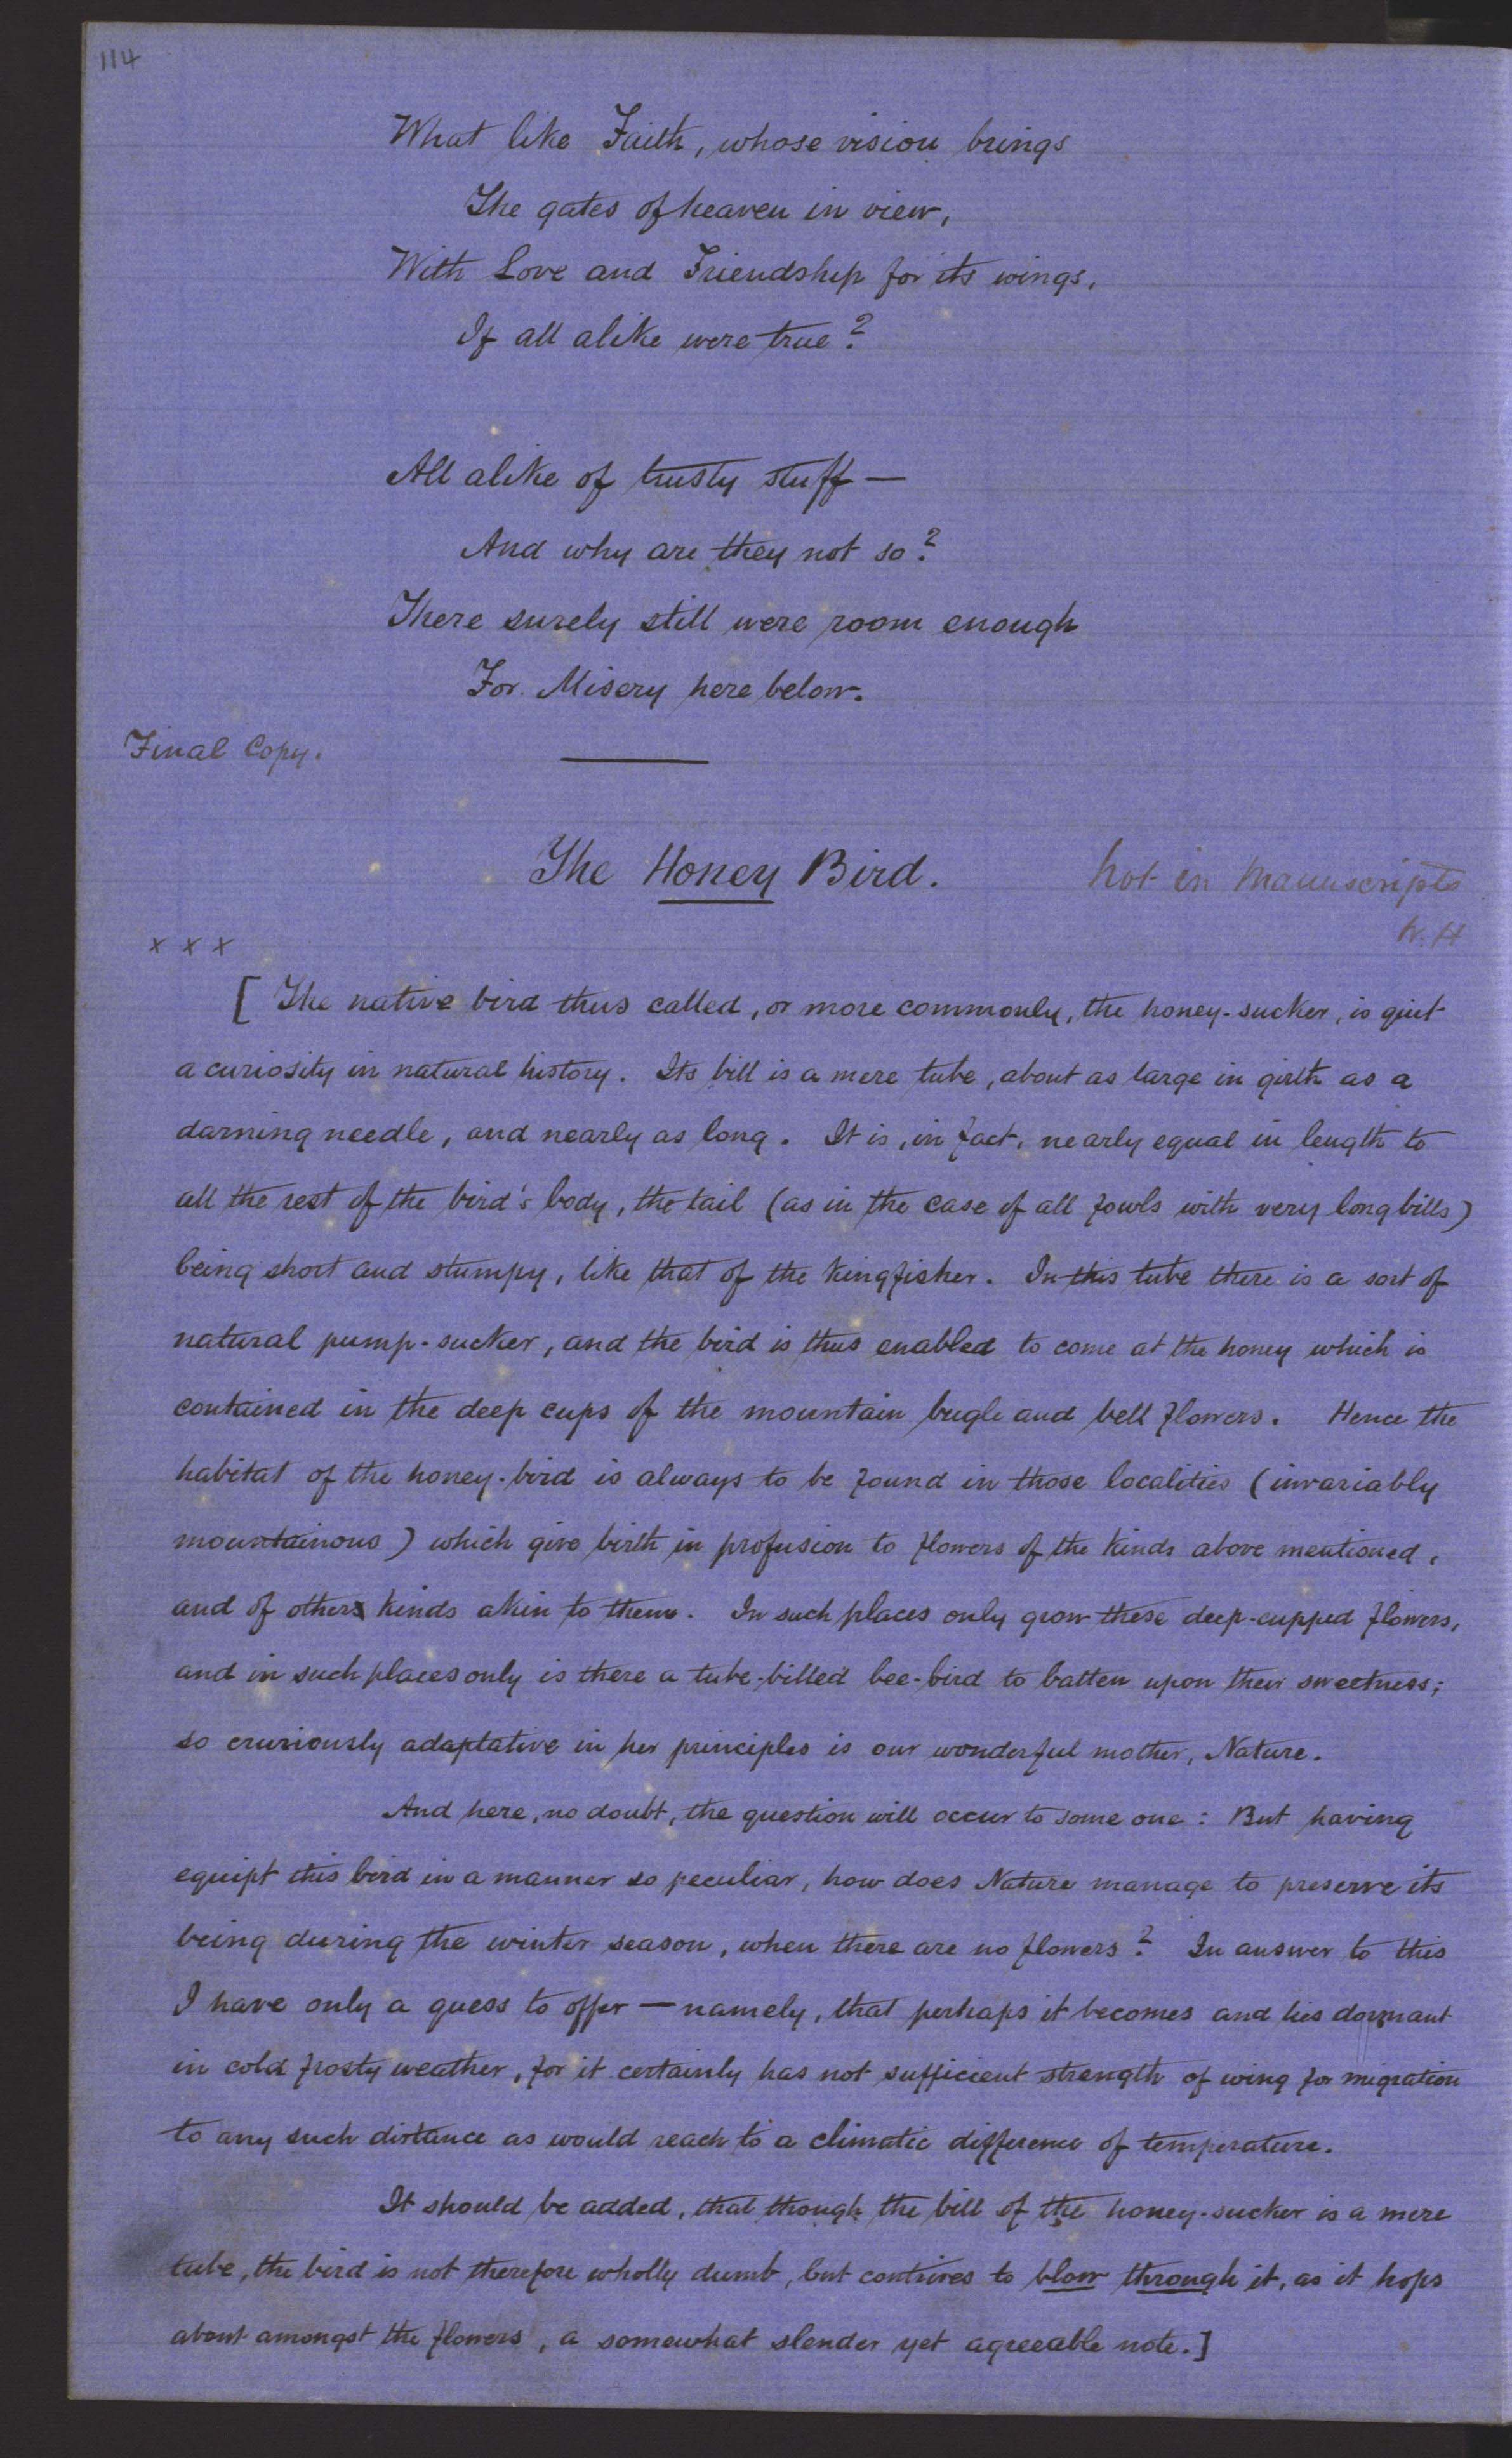 114
What like Faith, whose vision brings
The gates of heaven in view,
With Love and Friendship for its wings,
If all alike were true?
All alike of trusty stuff —
And why are they not so?
There surely still were room enough
For Misery here below.
Final Copy.
The Honey Bird.
Not in Manuscripts
W. H
x x x
[ The native bird thus called, or more commonly, the honey-sucker, is quit
a curiosity in natural history. Its bill is a mere tube, about as large in girth as a
darning needle, and nearly as long. It is, in fact, nearly equal in length to
all the rest of the bird's body, the tail (as in the case of all fowls with very long bills)
being short and stumpy, like that of the Kingfisher. In this tube there is a sort of
natural pump-sucker, and the bird is thus enabled to come at the honey which is
contained in the deep cups of the mountain bugle and bell flowers. Hence the
habitat of the honey-bird is always to be found in those localities (invariably
mountainous) which give birth in profusion to flowers of the kinds above mentioned,
and of other kinds akin to them. In such places only grow these deep-cupped flowers,
and in such places only is there a tube-billed bee-bird to batten upon their sweetness;
so cruriously adaptative in her principles is our wonderful mother, Nature.
And here, no doubt, the question will occur to some one: But having
equipt this bird in a manner so peculiar, how does Nature manage to preserve its
being during the winter season, when there are no flowers? In answer to this
I have only a guess to offer — namely, that perhaps it becomes and lies dormant
in cold frosty weather, for it certainly has not sufficient strength of wing for migration
to any such distance as would reach to a climatic difference of temperature.
It should be added, that though the bill of the honey-sucker is a mere
tube, the bird is not therefore wholly dumb, but contrives to blow through it, as it hops
about amongst the flowers, a somewhat slender yet agreeable note.]